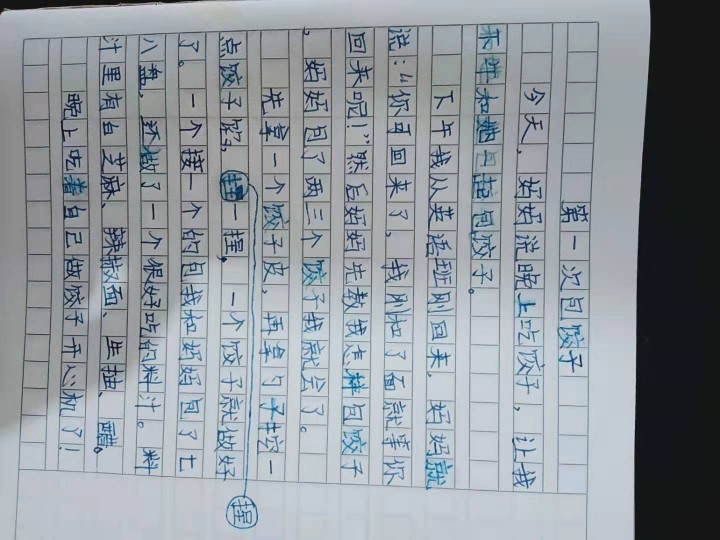 第一次包饺子
今天，妈妈说晚上吃饺子，让我
和她一起包饺子。
下午我从英语班刚回来，妈妈就
说：“你可回来了，我刚和了面就等你
回来呢！”然后妈妈先教我怎样包饺子
，妈妈包了两三个饺子我就会了。
先拿一个饺子皮，再拿勺子挖一
点饺子馅，捏一捏，一个饺子就做好
捏
了。一个接一个的包我和妈妈包了七
八盘，还做了一个很好吃的料汁。料
汁里有白芝麻、辣椒面、生抽、醋。
晚上吃着自己做饺子开心机了！